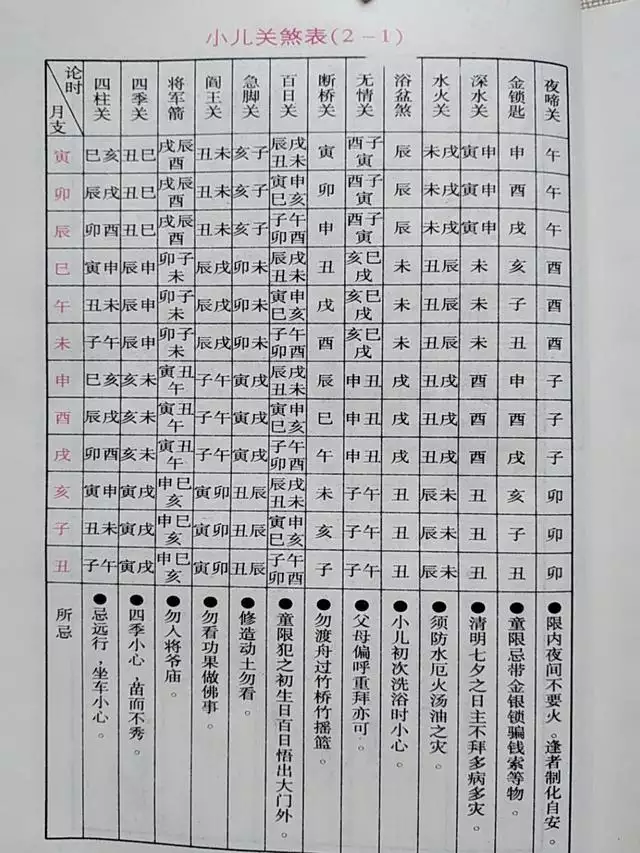 小儿关煞表(2-1)
论时 月支 四柱关 四季关 将军箭 阎王关 急脚关 百日关 断桥关 无情关 浴盆煞 水火关 深水关 金锁匙 夜啼关
寅 巳亥 丑巳 戌辰酉 丑未 亥子 辰戌丑未 寅 酉子寅 辰 未戌 寅申 申 午
卯 辰戌 丑巳 戌辰酉 丑未 亥子 寅申巳亥 卯 酉子寅 辰 未戌 寅申 酉 午
辰 卯酉 丑巳 戌辰酉 丑未 亥子 子午卯酉 申 酉子寅 辰 未戌 寅申 戌 午
巳 寅申 辰申 卯子未 辰戌 卯未 辰戌丑未 丑 亥巳戌 未 丑辰 未 亥 酉
午 丑未 辰申 卯子未 辰戌 卯未 寅申巳亥 戌 亥巳戌 未 丑辰 未 子 酉
未 子午 辰申 卯子未 辰戌 卯未 子午卯酉 酉 亥巳戌 未 丑辰 未 丑 酉
申 巳亥 亥未 寅丑午 子午 寅戌 辰戌丑未 辰 申丑 戌 戌辰 酉 申 子
酉 辰戌 亥未 寅丑午 子午 寅戌 寅申巳亥 巳 申丑 戌 戌辰 酉 酉 子
戌 卯酉 亥未 寅丑午 子午 寅戌 子午卯酉 午 申丑 戌 戌辰 酉 戌 子
亥 寅申 寅戌 申巳亥 寅卯 丑辰 辰戌丑未 未 子午 丑 辰未 丑 亥 卯
子 丑未 寅戌 申巳亥 寅卯 丑辰 寅申巳亥 亥 子午 丑 辰未 丑 子 卯
丑 子午 寅戌 申巳亥 寅卯 丑辰 子午卯酉 子 子午 丑 辰未 丑 丑 卯
所忌
●忌远行，坐车小心。
●四季小心，苗而不秀。
●勿入将爷庙。
●勿看功果做佛事。
●修造动土勿看。
●童限犯之初生日百日悟出大门外。
●勿渡舟过竹桥竹摇篮。
●父母偏呼重拜亦可。
●小儿初次洗浴时小心。
●须防水厄火汤油之灾。
●清明七夕之日主不拜多病多灾。
●童限忌带金银锁骗钱索等物。
●限内夜间不要火。逢者制化自安。